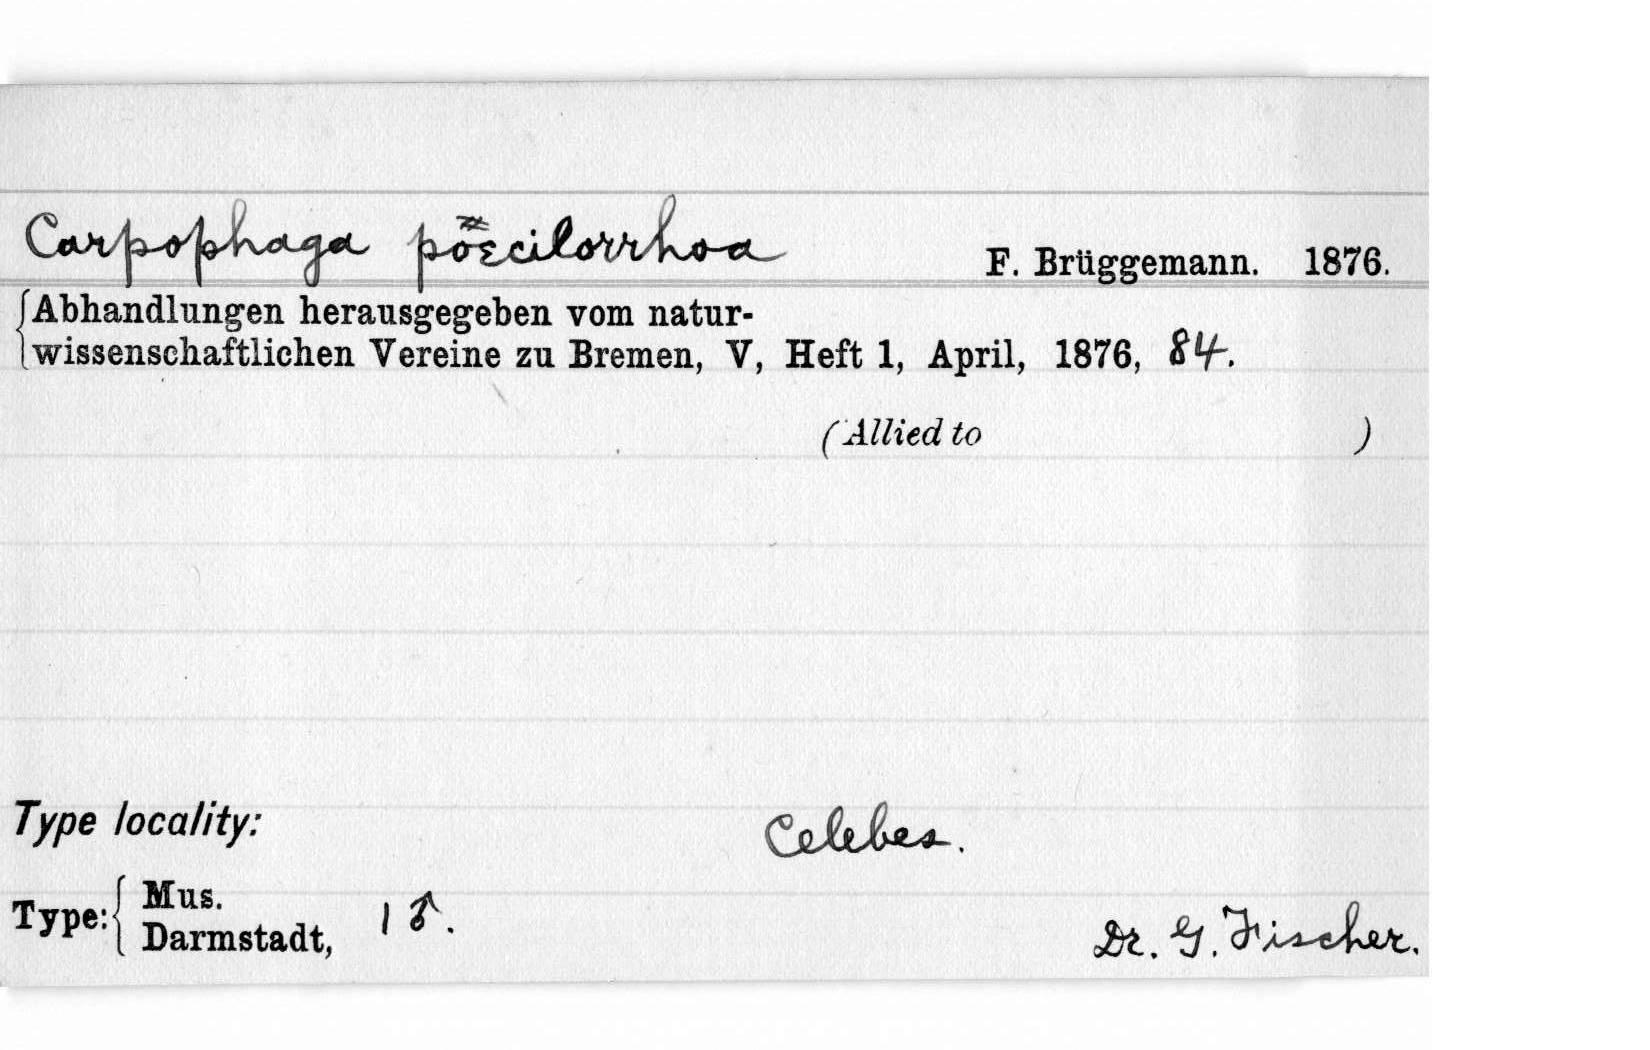 Carpophaga pöecilorrhoa F. Brüggemann. 1876.
Abhandlungen herausgegeben vom natur-
wissenschaftlichen Vereine zu Bremen, V, Heft 1, April, 1876, 84.
(Allied to )
Type locality: Celebes.
Type: Mus.
Darmstadt, 1 ♂. Dr. G. Fischer.